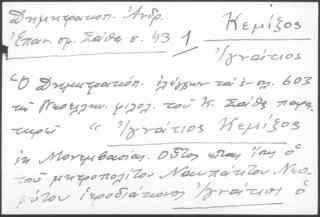 Δημητρακοπ. Ἀνδρ.
Κεμίξος
Ἐπαν. σφ. Σάθα σ. 43 /
Ἰγνάτιος
"Ὁ Δημητρακόπ. ἐλέγχων τὰ ἐν σλ. 603
τῆς Νεοελλην. φιλολ. τοῦ Κ. Σάθα παρα
τηρεῖ " Ἰγνάτιος Κεμίξος
ἐκ Μονεμβασίας. Οὗτος εἶναι ἴσως ὁ
τοῦ μητροπολίτου Ναυπάκτου Νεο
φύτου ἱεροδιάκονος Ἰγνάτιος ὁ